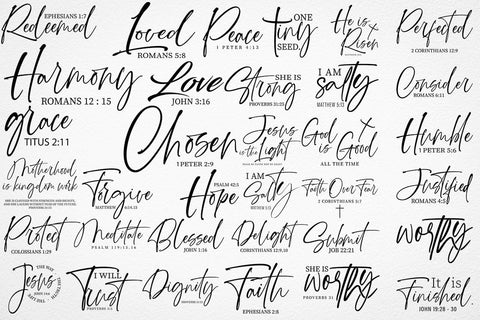 Redeemed
EPHESIANS 1:7
Loved
ROMANS 5:8
Peace
1 PETER 4:13
ONE
tiny
SEED.
He is
Risen
Perfected
2 CORINTHIANS 12:9
Harmony
ROMANS 12 : 15
Love
JOHN 3:16
SHE IS
Strong
PROVERBS 31:25
I AM
salty
MATTHEW 5:13
Consider
ROMANS 6:11
grace
TITUS 2:11
Chosen
1 PETER 2:9
Jesus
is the Light
God
is Good
ALL THE TIME
Humble
1 PETER 5:6
Motherhood
is kingdom work
SHE IS CLOTHED WITH STRENGTH AND DIGNITY,
AND SHE LAUGHS WITHOUT FEAR OF THE FUTURE.
PROVERBS 31:25
Forgive
MATTHEW 6:14.15
PSALM 42:5
Hope
I AM
Salty
MATTHEW 5:13
Faith Over Fear
2 CORINTHIANS 5:7
Justified
ROMANS 4:5
Protect
COLOSSIANS 1:29
Meditate
PSALM 119:15.16
Blessed
JOHN 1:16
Delight
CORINTHIANS 12:9,10
Submit
JOB 22:21
worthy
Jesus
THE WAY
THE TRUTH
THE LIFE
JOHN 14:6
I WILL
Trust
PROVERBS 3:5
Dignity
PROVERBS 31:25
Faith
EPHESIANS 2:8
SHE IS
worthy
PROVERBS 31
It is
Finished.
JOHN 19:28 - 30